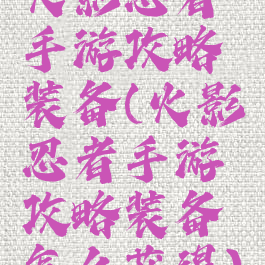 火影忍者
手游攻略
装备(火影
忍者手游
攻略装备
怎么获得)